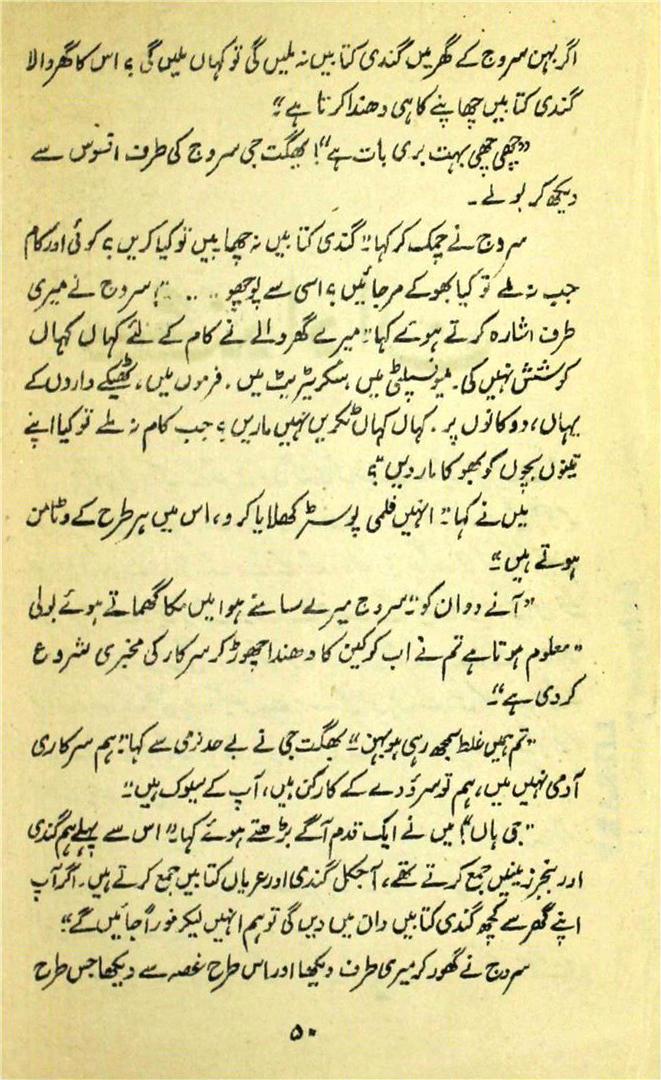 اگر بہن سروج کے گھر میں گندی کتابیں نہ ملیں گی تو کہاں ملیں گی؟ اس کا گھر والا
گندی کتابیں چھاپنے کا ہی دھندا کرتا ہے"
"چھی چھی بہت بری بات ہے"! بھگت جی سروج کی طرف افسوس سے
دیکھ کر بولے۔
سروج نے چمک کر کہا "گندی کتابیں نہ چھاپیں تو کیا کریں؟ کوئی اور کام
جب نہ ملے تو کیا بھوکے مرجائیں؟ اسی سے پوچھو ....."! سروج نے میری
طرف اشارہ کرتے ہوئے کہا "میرے گھر والے نے کام کے لئے کہاں کہاں
کوشش نہیں کی۔ میونسپلٹی میں، سکریٹریٹ میں۔ فرموں میں، ٹھیکے داروں کے
یہاں، دوکانوں پر۔ کہاں کہاں ٹکریں نہیں ماریں؟ جب کام نہ ملے تو کیا اپنے
تینوں بچوں کو بھوکا مار دیں"؟
میں نے کہا "انہیں فلمی پوسٹر کھلایا کرو، اس میں ہر طرح کے وٹامن
ہوتے ہیں"
"آنے دو ان کو" سروج میرے سامنے ہوا میں مکا گھماتے ہوئے بولی
"معلوم ہوتا ہے تم نے اب کوکین کا دھندا چھوڑ کر سرکار کی مخبری شروع
کر دی ہے"۔
"تم ہمیں غلط سمجھ رہی ہو بہن"۔ بھگت جی نے بے حد نرمی سے کہا "ہم سرکاری
آدمی نہیں ہیں، ہم تو سروُدے کے کارکن ہیں، آپ کے سیوک ہیں"
"جی ہاں"! میں نے ایک قدم آگے بڑھتے ہوئے کہا "اس سے پہلے ہم گندی
اور بنجر زمینیں جمع کرتے تھے، آجکل گندی اور عریاں کتابیں جمع کرتے ہیں۔ اگر آپ
اپنے گھر سے کچھ گندی کتابیں دان میں دیں گی تو ہم انہیں لیکر فوراً جائیں گے"
سروج نے گھور کر میری طرف دیکھا اور اس طرح غصہ سے دیکھا جس طرح
۵۰